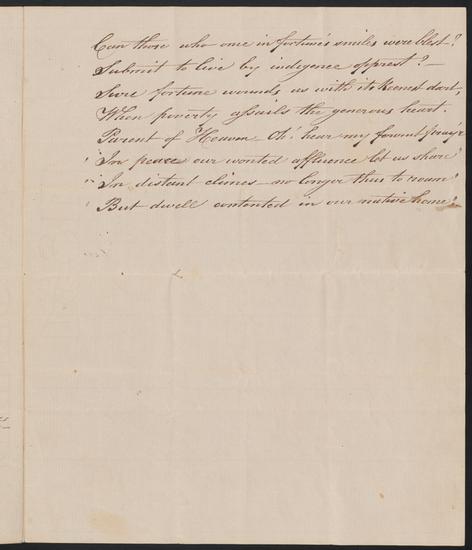 Can those who once in fortune's smiles were blest?
Submit to live by indigence opprest?—
Sure fortune wounds us with its keenest dart,
When poverty assails the generous heart.
Parent of Heaven Oh! hear my fervent pray'r
In peace our wonted affluence let us share
In distant climes— no longer thus to roam
But dwell contented in our native home.